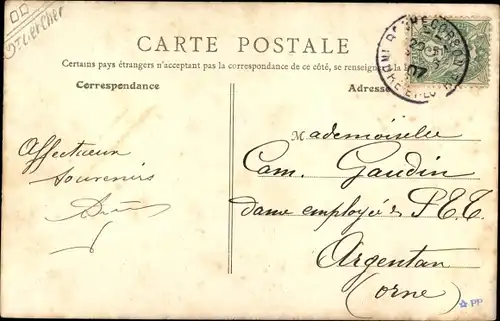 CARTE POSTALE
Certains pays étrangers n'acceptant pas la correspondance de ce côté, se renseigner à la
Correspondance
Adresse
Mademoiselle
Cam. Gaudin
dame employée P.T.T.
Argentan
(Orne)
Affectueux
souvenirs
PP